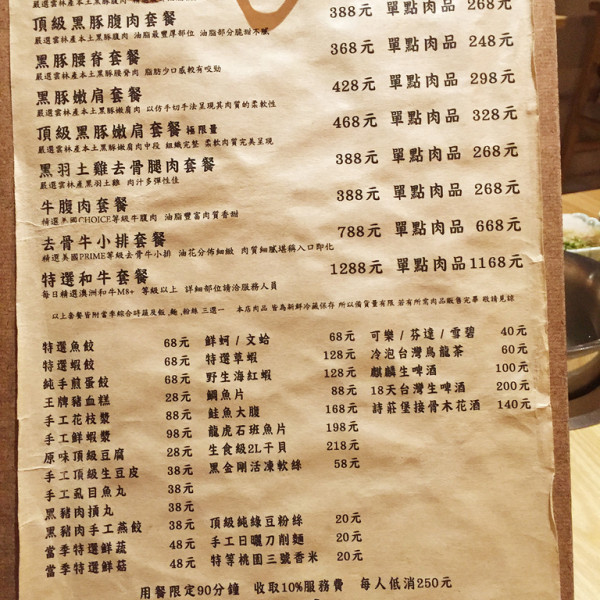 頂級黑豚腹肉套餐 388元 單點肉品 268元
嚴選雲林產本土黑豚腹肉 油脂最豐厚部位 油脂部分脆甜不膩
黑豚腰脊套餐 368元 單點肉品 248元
嚴選雲林產本土黑豚腰脊肉 脂肪少口感較有咬勁
黑豚嫩肩套餐 428元 單點肉品 298元
嚴選雲林產本土黑豚嫩肩肉 以仿手切手法呈現其肉質的柔軟性
頂級黑豚嫩肩套餐 極限量 468元 單點肉品 328元
嚴選雲林產本土黑豚嫩肩肉中段 組織完整 柔軟肉質完美呈現
黑羽土雞去骨腿肉套餐 388元 單點肉品 268元
嚴選雲林產黑羽土雞 肉汁多彈性佳
牛腹肉套餐 388元 單點肉品 268元
精選美國CHOICE等級牛腹肉 油脂豐富肉質香甜
去骨牛小排套餐 788元 單點肉品 668元
精選美國PRIME等級去骨牛小排 油花分佈細緻 肉質細膩堪稱入口即化
特選和牛套餐 1288元 單點肉品 1168元
每日精選澳洲和牛M8+ 等級以上 詳細部位請洽服務人員
以上套餐皆附當季綜合時蔬及飯,麵,粉絲 三選一 本店肉品 皆為新鮮冷藏保存 所以備貨量有限 若有所需肉品販售完畢 敬請見諒
特選魚餃 68元
特選蝦餃 68元
純手煎蛋餃 68元
王牌豬血糕 28元
手工花枝漿 88元
手工鮮蝦漿 98元
原味頂級豆腐 28元
手工頂級生豆皮 38元
手工虱目魚丸 38元
黑豬肉摃丸 38元
黑豬肉手工燕餃 38元
當季特選鮮蔬 48元
當季特選鮮菇 48元
鮮蚵/文蛤 68元
特選草蝦 128元
野生海紅蝦 128元
鯛魚片 88元
鮭魚大腹 168元
龍虎石班魚片 198元
生食級2L干貝 218元
黑金剛活凍軟絲 58元
頂級純綠豆粉絲 20元
手工日曬刀削麵 20元
特等桃園三號香米 20元
可樂/芬達/雪碧 40元
冷泡台灣烏龍茶 60元
麒麟生啤酒 100元
18天台灣生啤酒 200元
詩莊堡接骨木花酒 140元
用餐限定90分鐘 收取10%服務費 每人低消250元